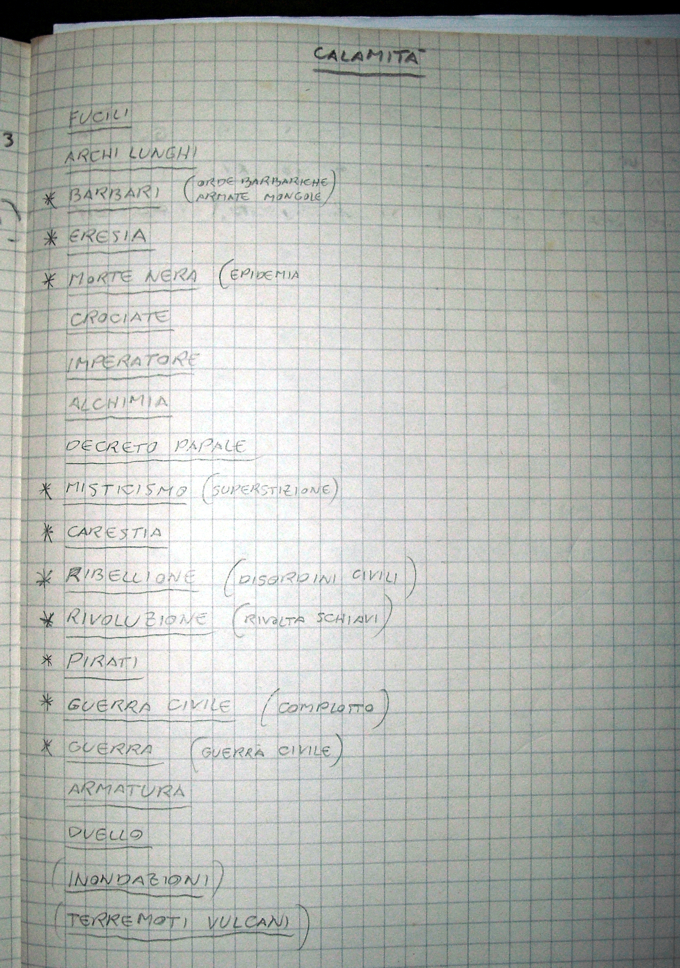 CALAMITÀ
3
FUCILI
ARCHI LUNGHI
* BARBARI (ORDE BARBARICHE
ARMATE MONGOLE)
* ERESIA
* MORTE NERA (EPIDEMIA
CROCIATE
IMPERATORE
ALCHIMIA
DECRETO PAPALE
* MISTICISMO (SUPERSTIZIONE)
* CARESTIA
* RIBELLIONE (DISORDINI CIVILI)
* RIVOLUZIONE (RIVOLTA SCHIAVI)
* PIRATI
* GUERRA CIVILE (COMPLOTTO)
* GUERRA (GUERRA CIVILE)
ARMATURA
DUELLO
(INONDAZIONI)
(TERREMOTI VULCANI)